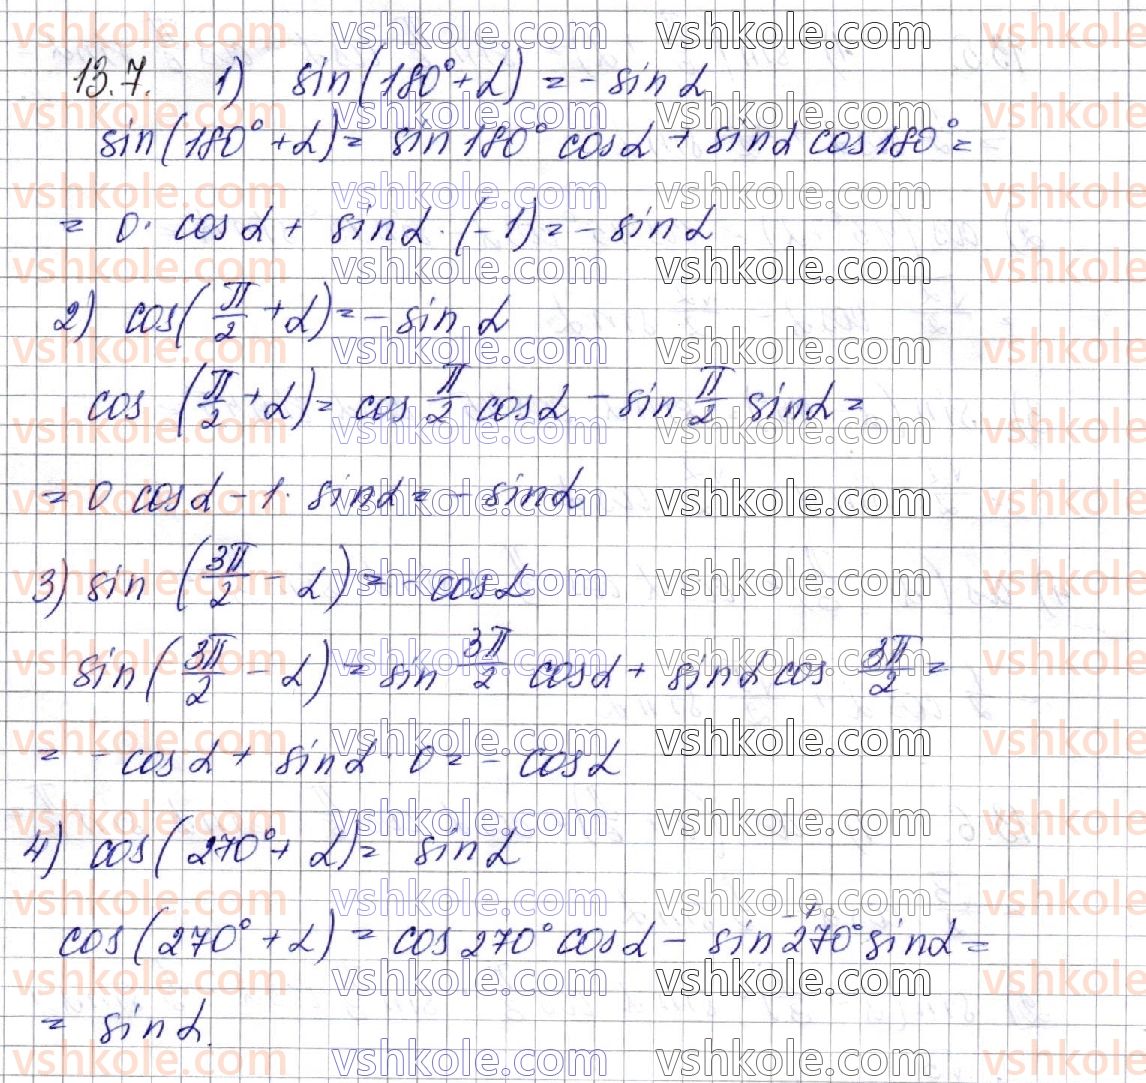 13.7. 1) sin(180°+α)=-sinα
sin(180°+α)= sin180°cosα+sinαcos180°=
= 0·cosα+ sinα·(-1)=-sinα
2) cos(π/2+α)=-sinα
cos(π/2+α)=cosπ/2cosα-sinπ/2sinα=
=0cosα-1·sinα=-sinα
3) sin(3π/2-α)=-cosα
sin(3π/2-α)=sin3π/2cosα+sinαcos3π/2=
= -cosα+sinα·0=-cosα
4) cos(270°+α)= sinα
-1
cos(270°+α)=cos270°cosα-sin270°sinα=
= sinα.
vshkole.com